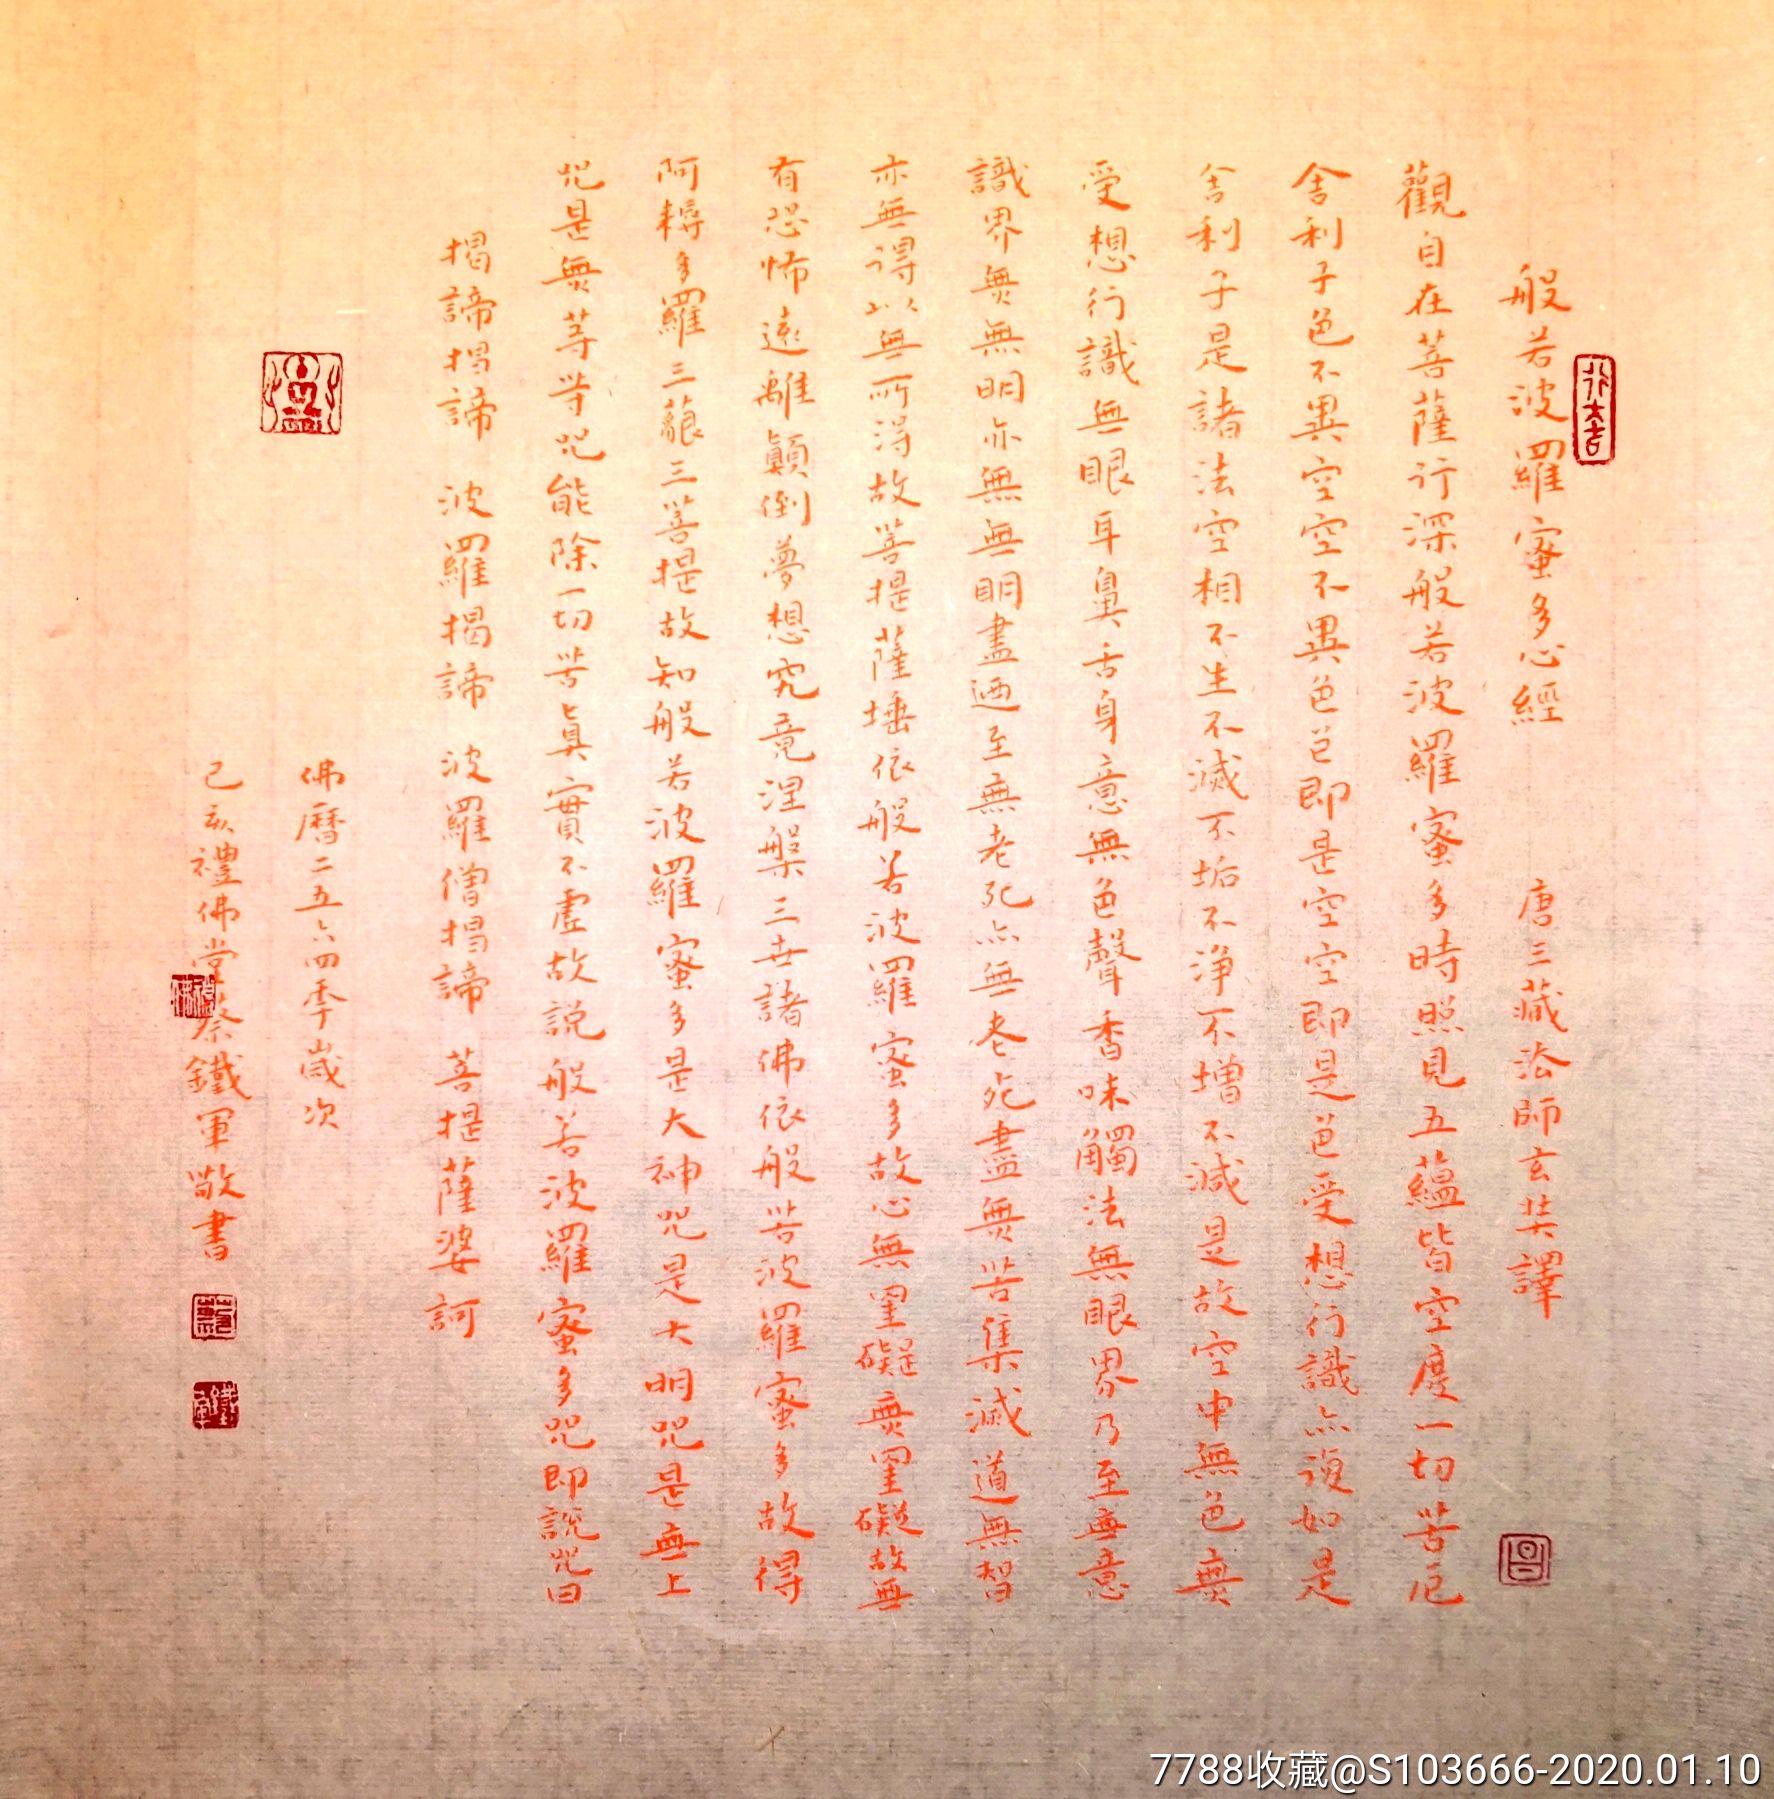 般若波羅蜜多心經 唐三藏法師玄奘譯
觀自在菩薩行深般若波羅蜜多時照見五蘊皆空度一切苦厄
舍利子色不異空空不異色色即是空空即是色受想行識亦復如是
舍利子是諸法空相不生不滅不垢不淨不增不減是故空中無色無
受想行識無眼耳鼻舌身意無色聲香味觸法無眼界乃至無意
識界無無明亦無無明盡迺至無老死亦無老死盡無苦集滅道無智
亦無得以無所得故菩提薩埵依般若波羅蜜多故心無罣礙無罣礙故無
有恐怖遠離顛倒夢想究竟涅槃三世諸佛依般若波羅蜜多故得
阿耨多羅三藐三菩提故知般若波羅蜜多是大神咒是大明咒是無上
咒是無等等咒能除一切苦真實不虛故說般若波羅蜜多咒即說咒曰
揭諦揭諦 波羅揭諦 波羅僧揭諦 菩提薩婆訶
佛曆二五六四季歲次
己亥禮佛堂蔡鐵軍敬書
7788收藏@S103666-2020.01.10